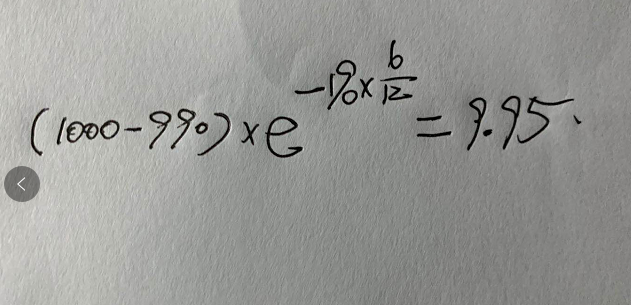 (1000-990)×e^{-1%×\frac{6}{12}}=9.95.